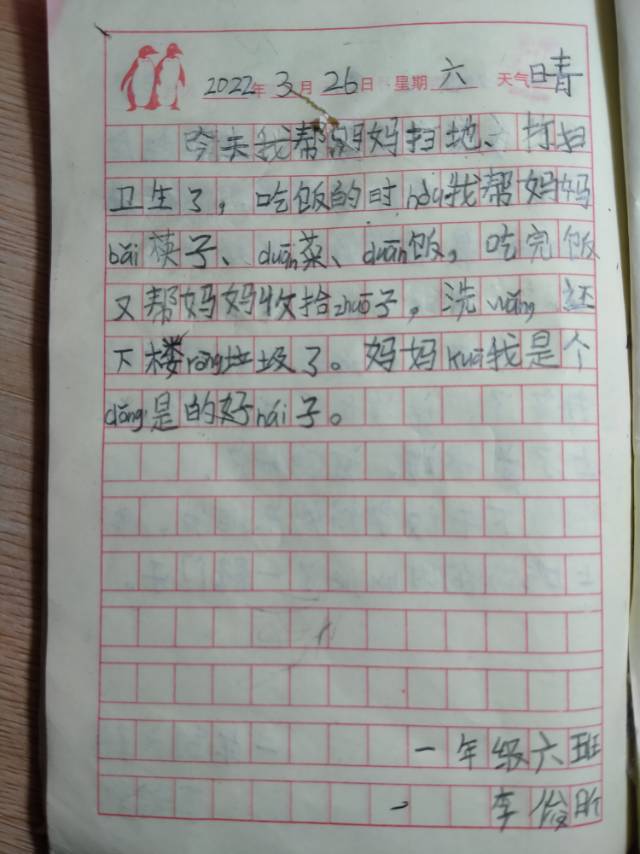 2022年3月26日 星期六 天气晴
今天我帮妈妈扫地、打扫
卫生了，吃饭的时hòu我帮妈妈
bǎi筷子、duān菜、duān饭，吃完饭
又帮妈妈收拾zhuō子，洗wǎng，还
下楼rēng垃圾了。妈妈kuā我是个
dǒng是的好hái子。
一年级六班
李俊昕